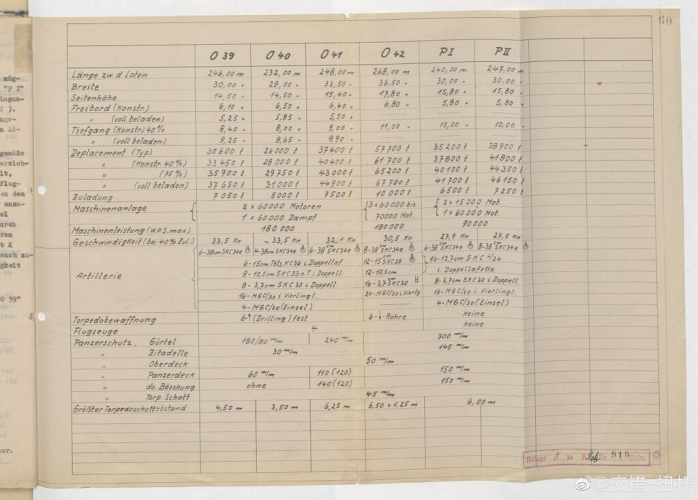 60
O 39 O 40 O 41 O 42 PI PII
Länge zw. d. Loten 246,00 m 232,00 m 248,00 m 268,00 m 240,00 m 247,00 m
Breite 30,00 " 28,00 " 33,50 " 36,50 " 30,00 " 30,00 "
Seitenhöhe 14,50 " 14,50 " 15,40 " 17,80 " 15,80 " 15,80 "
Freibord (Konstr.) 6,10 " 6,50 " 6,40 " 6,80 " 5,80 " 5,80 "
" (voll beladen) 5,25 " 5,85 " 5,50 "
Tiefgang (Konstr) 40% 8,40 " 8,00 " 9,00 " 11,00 " 10,00 " 10,00 "
" (voll beladen) 9,25 " 8,65 " 9,90 "
Deplacement (Typ) 30 600 t 26 000 t 37 400 t 57 700 t 35 200 t 38 900 t
" (Konstr. 40%) 33 450 t 28 000 t 40 400 t 61 700 t 37 800 t 41 800 t
" (75%) 35 900 t 29 750 t 43 000 t 65 200 t 40 100 t 44 350 t
" (voll beladen) 37 650 t 31 000 t 44 900 t 67 700 t 41 700 t 46 150 t
Zuladung 7 050 t 5 000 t 7 500 t 10 000 t 6 500 t 7 250 t
Maschinenanlage 2 x 60000 Motoren 3 x 60 000 bis 2 x 15 000 Mot.
1 x 60000 Dampf 70000 Mot. 1 x 60 000 Mot.
Maschinenleistung (W.P.S. max) 180 000 180000 90 000
Geschwindigkeit (bei 40% Zul.) 33,5 Kn ~ 33,5 Kn 32,1 Kn 30,5 Kn 27,9 Kn 27,5 Kn
6-38 cm SKC34e 4-38cm SKC34e 6-38 cm SKC34e 8-38 cm SKC34e 6-38 SKC34e 8-38 SKC34e
6-15cm Tbts. KC36 i. Doppellaf 12-15 SKC28 14-12,7cm SKC/34
Artillerie 8-10,5cm SKC33 n.T i. Doppell. 12-10,5cm i. Doppellafette
8-3,7cm SKC30 i. Doppell. 16-3,7 SKC30 8-3,7cm SKC30 i. Doppell.
16-MGC/30 i. Vierlingl. 24-MGC/30 i. Vierlg 16-MGC/30 i. Vierlingl.
4-MGC/30 (Einzel) 4-MGC/30 (Einzel)
Torpedobewaffnung (Drilling) fest Rohre Keine
Flugzeuge 4 Keine
Panzerschutz, Gürtel 180/80 m/m 240 m/m 300 m/m
" Zitadelle 30 m/m 145 m/m
" Oberdeck 50 m/m
" Panzerdeck 60 m/m 110 (120) 150 m/m
" do. Böschung ohne 140 (120) 150 m/m
" Torp. Schott 45 m/m
Größter Torpedoschottabstand 4,50 m 3,50 m 6,25 m 6,50 + 1,25 m 6,00 m
919